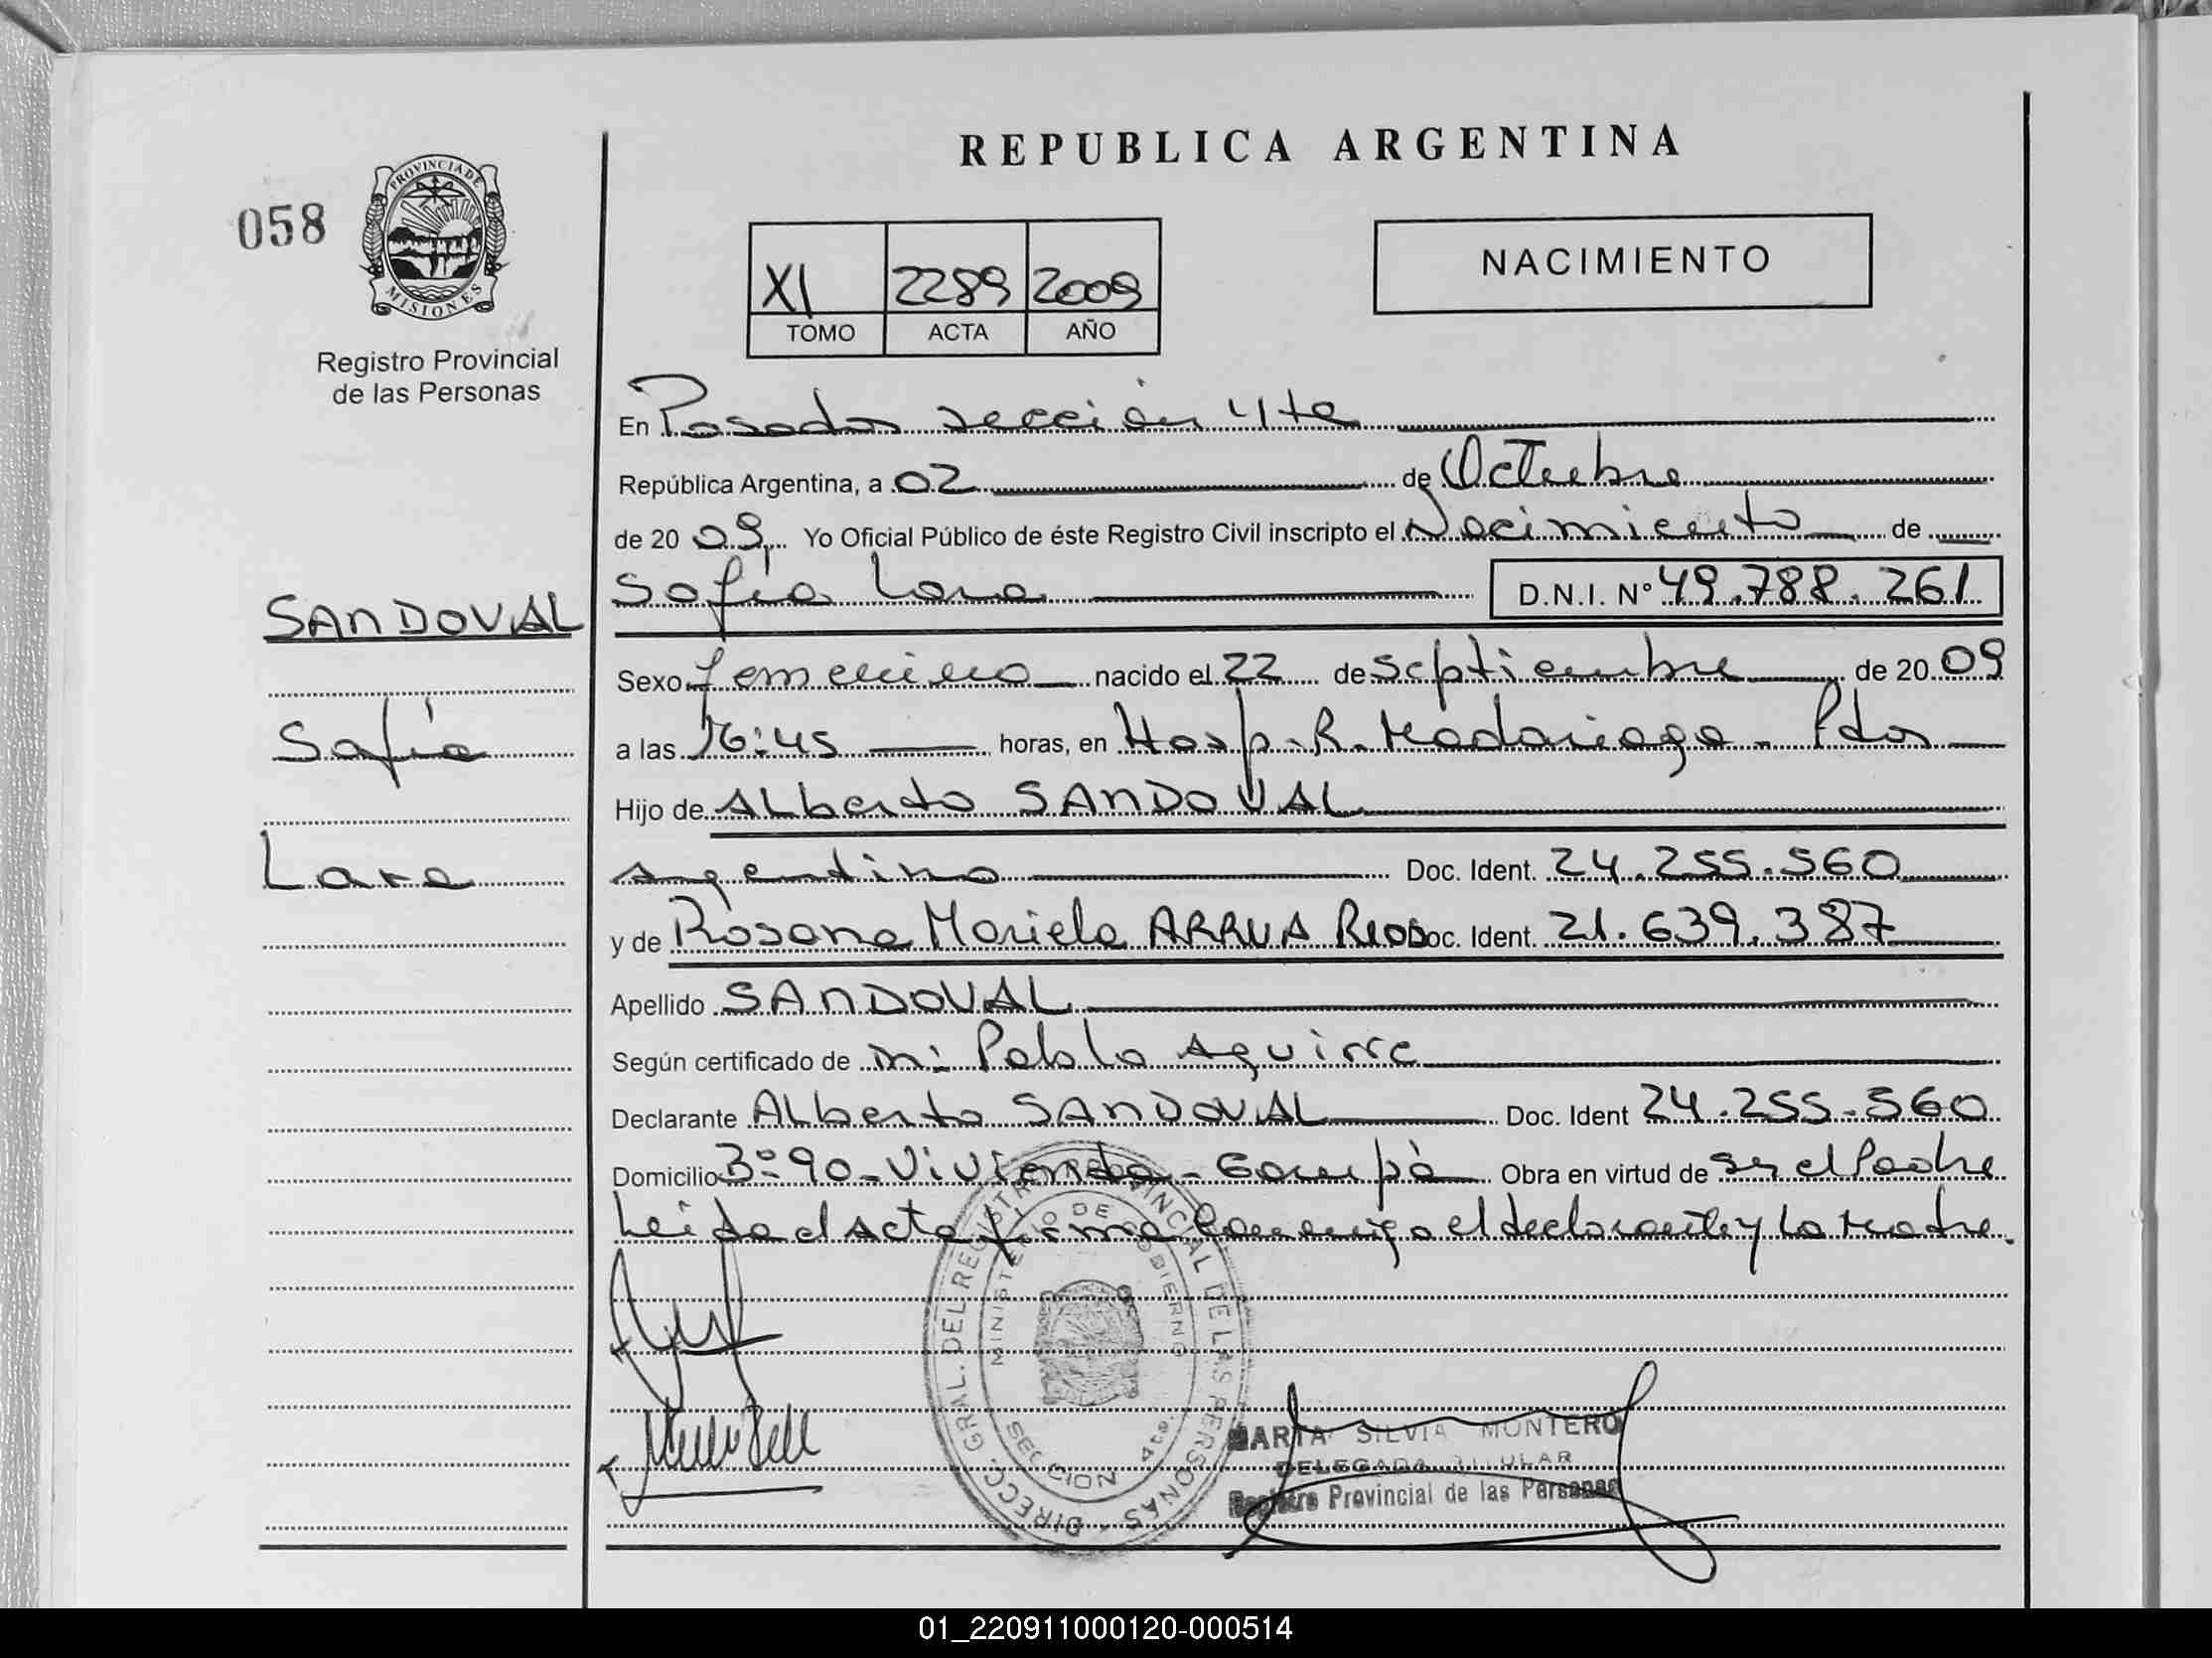 REPUBLICA ARGENTINA
058
PROVINCIA DE
MISIONES
Registro Provincial
de las Personas
XI 2289 2009
TOMO ACTA AÑO
NACIMIENTO
En Posadas sección 4ta
República Argentina, a 02 de Octubre
de 20 09 Yo Oficial Público de éste Registro Civil inscripto el Nacimiento de
Sofía Lara D.N.I. Nº 49.788.261
SANDOVAL
Sofía
Lara
Sexo femenino nacido el 22 de Septiembre de 20 09
a las 16:45 horas, en Hosp. R. Madariaga - Pdas
Hijo de Alberto SANDOVAL
Argentino Doc. Ident. 24.255.560
y de Rosana Mariela ARRUA RIOS Doc. Ident. 21.639.387
Apellido SANDOVAL
Según certificado de Pablo Aguirre
Declarante Alberto SANDOVAL Doc. Ident 24.255.560
Domicilio 3º 90 - Vivienda - Garupá Obra en virtud de ser el Padre
Leída el Acta firma conmigo el declarante y la Madre.
DIRECC. GRAL. DEL REGISTRO PROVINCIAL DE LAS PERSONAS
MINISTERIO DE GOBIERNO
SECCION 4ta.
MARTA SILVIA MONTERO
DELEGADA TITULAR
Registro Provincial de las Personas
01_220911000120-000514